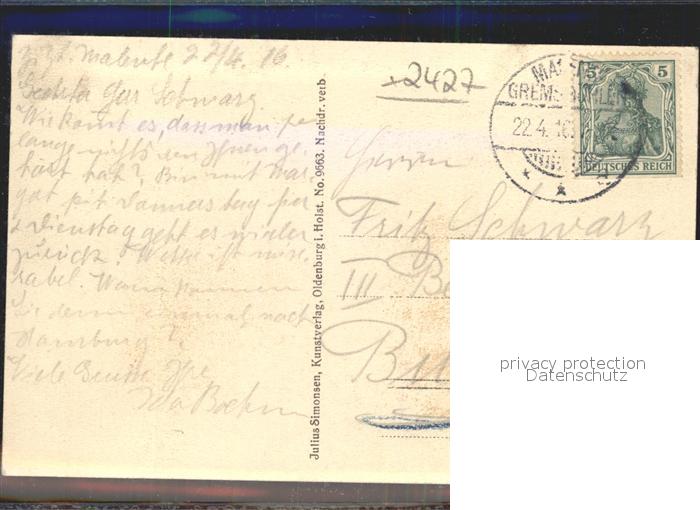 z. Zt. Malente 22/4. 16.
Herr Schwarz.
Wie kommt es, dass man so
lange nichts von Ihnen ge-
hört hat? Bin mit
seit Donnerstag hier
Dienstag geht es wieder
zurück. Wetter ist mise-
rabel. Wann kommen
Sie denn einmal nach
Hamburg?
Viele Grüsse Ihre
Boehm
Julius Simonsen, Kunstverlag, Oldenburg i. Holst. No. 9663. Nachdr. verb.
2427
22.4.16
5 5
DEUTSCHES REICH
Herrn
Fritz Schwarz
III
privacy protection
Datenschutz